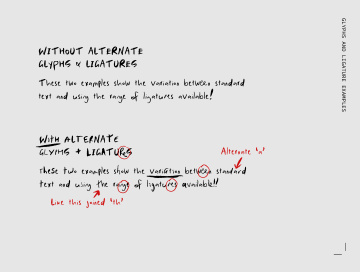 WITHOUT ALTERNATE
GLYPHS & LIGATURES
These two examples show the variation between standard
text and using the range of ligatures available!
WITH ALTERNATE
GLYPHS + LIGATURES
These two examples show the variation between standard
text and using the range of ligatures available!!
Alternate 'a'
Like this joined 'th'
GLYPHS AND LIGATURE EXAMPLES